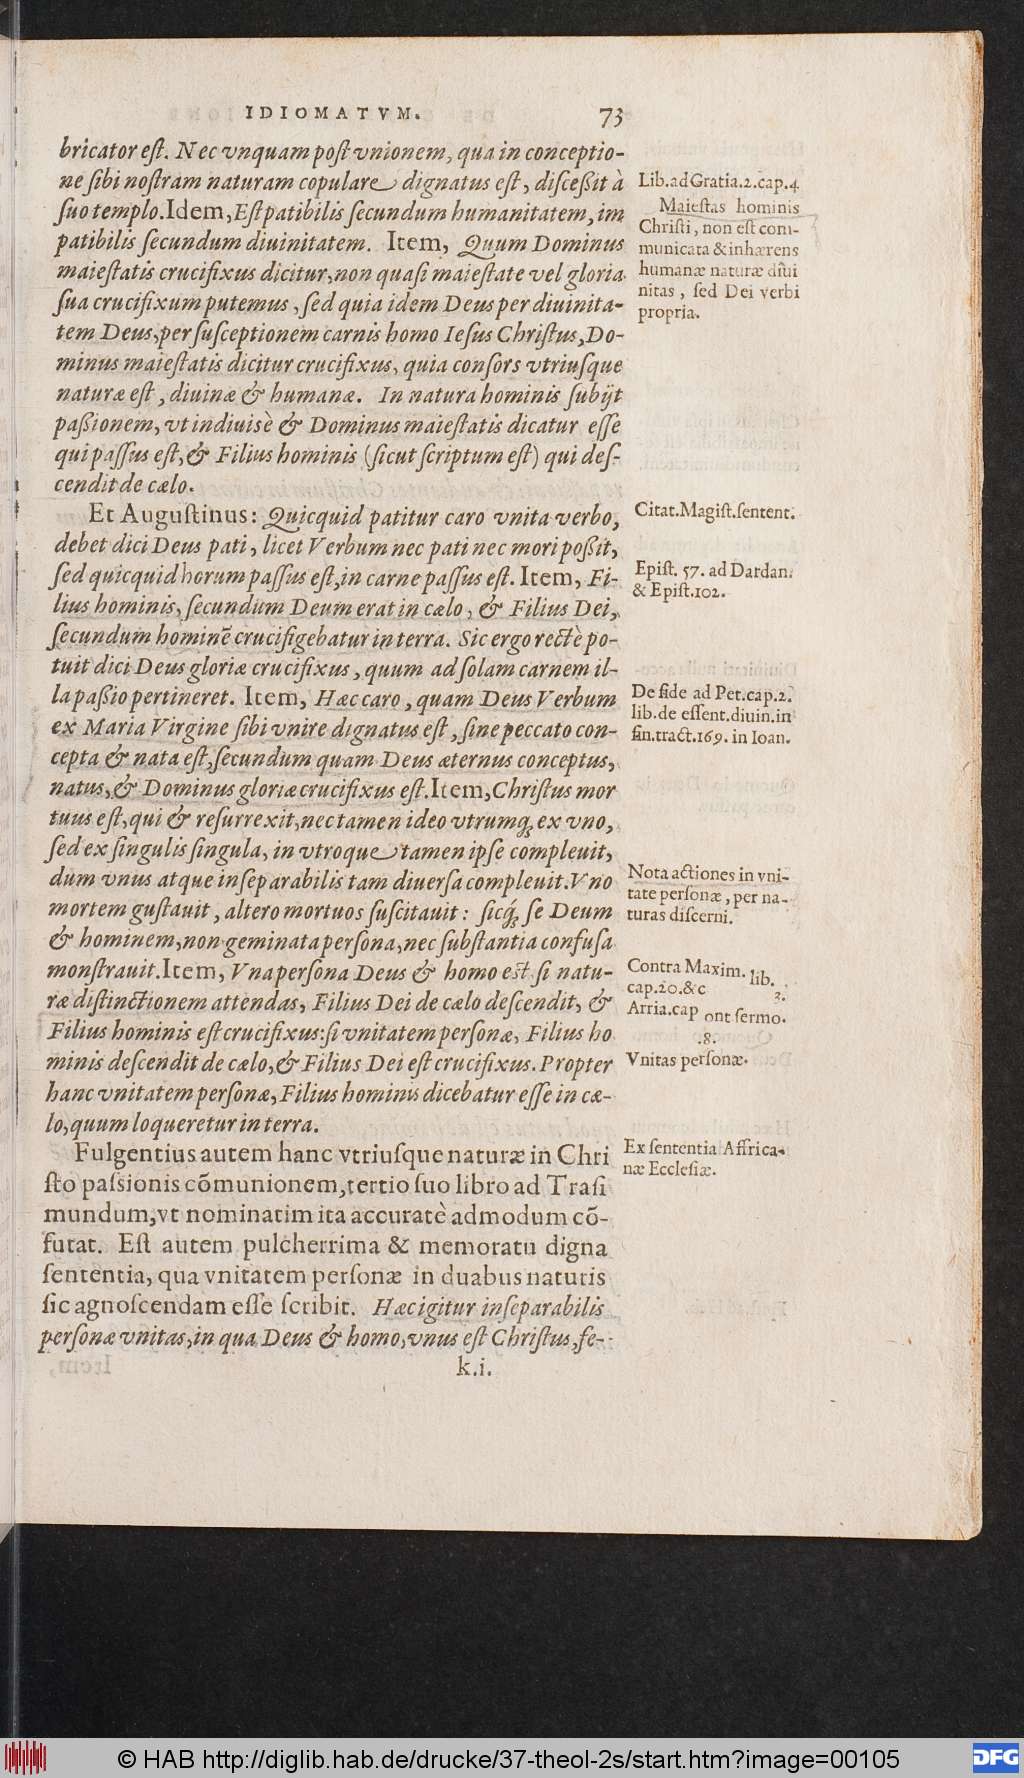 IDIOMATVM. 73
bricator eſt. Nec vnquam poſt vnionem, qua in conceptio-
ne ſibi noſtram naturam copulare dignatus eſt, diſceßit à
ſuo templo. Idem, Eſt patibilis ſecundum humanitatem, im
patibilis ſecundum diuinitatem. Item, Quum Dominus
maieſtatis crucifixus dicitur, non quaſi maieſtate vel gloria
ſua crucifixum putemus, ſed quia idem Deus per diuinita-
tem Deus, per ſuſceptionem carnis homo Ieſus Chriſtus, Do-
minus maieſtatis dicitur crucifixus, quia conſors vtriuſque
naturæ eſt, diuinæ & humanæ. In natura hominis ſubijt
paßionem, vt indiuisè & Dominus maieſtatis dicatur eſſe
qui paſſus eſt, & Filius hominis (ſicut ſcriptum eſt) qui deſ-
cendit de cælo.
Et Auguſtinus: Quicquid patitur caro vnita verbo,
debet dici Deus pati, licet Verbum nec pati nec mori poßit,
ſed quicquid horum paſſus eſt, in carne paſſus eſt. Item, Fi-
lius hominis, ſecundum Deum erat in cælo, & Filius Dei,
ſecundum hominē crucifigebatur in terra. Sic ergo rectè po-
tuit dici Deus gloriæ crucifixus, quum ad ſolam carnem il-
la paßio pertineret. Item, Hæc caro, quam Deus Verbum
ex Maria Virgine ſibi vnire dignatus eſt, ſine peccato con-
cepta & nata eſt, ſecundum quam Deus æternus conceptus,
natus, & Dominus gloriæ crucifixus eſt. Item, Chriſtus mor
tuus eſt, qui & reſurrexit, nec tamen ideo vtrumq; ex vno,
ſed ex ſingulis ſingula, in vtroque tamen ipſe compleuit,
dum vnus atque inſeparabilis tam diuerſa compleuit. Vno
mortem guſtauit, altero mortuos ſuſcitauit: ſicq́; ſe Deum
& hominem, non geminata perſona, nec ſubſtantia confuſa
monſtrauit. Item, Vna perſona Deus & homo eſt. ſi natu-
ræ diſtinctionem attendas, Filius Dei de cælo deſcendit, &
Filius hominis eſt crucifixus: ſi vnitatem perſonæ, Filius ho
minis deſcendit de cælo, & Filius Dei eſt crucifixus. Propter
hanc vnitatem perſonæ, Filius hominis dicebatur eſſe in cæ-
lo, quum loqueretur in terra.
Fulgentius autem hanc vtriuſque naturæ in Chri
ſto paſsionis cōmunionem, tertio ſuo libro ad Traſi
mundum, vt nominatim ita accuratè admodum cō-
futat. Eſt autem pulcherrima & memoratu digna
ſententia, qua vnitatem perſonæ in duabus naturis
ſic agnoſcendam eſſe ſcribit. Hæc igitur inſeparabilis
perſonæ vnitas, in qua Deus & homo, vnus eſt Chriſtus, ſe-
k.i.
Lib. ad Gratia. 2. cap. 4
Maieſtas hominis
Chriſti, non eſt com-
municata & inhærens
humanæ naturæ diui
nitas, ſed Dei verbi
propria.
Citat. Magiſt. ſentent.
Epiſt. 57. ad Dardan.
& Epiſt. 102.
De fide ad Pet. cap. 2.
lib. de eſſent. diuin. in
fin. tract. 169. in Ioan.
Nota actiones in vni-
tate perſonæ, per na-
turas diſcerni.
Contra Maxim. lib.
cap. 20. &c 3.
Arria. cap ont ſermo.
.8.
Vnitas perſonæ.
Ex ſententia Affrica-
næ Eccleſiæ.
© HAB http://diglib.hab.de/drucke/37-theol-2s/start.htm?image=00105
DFG